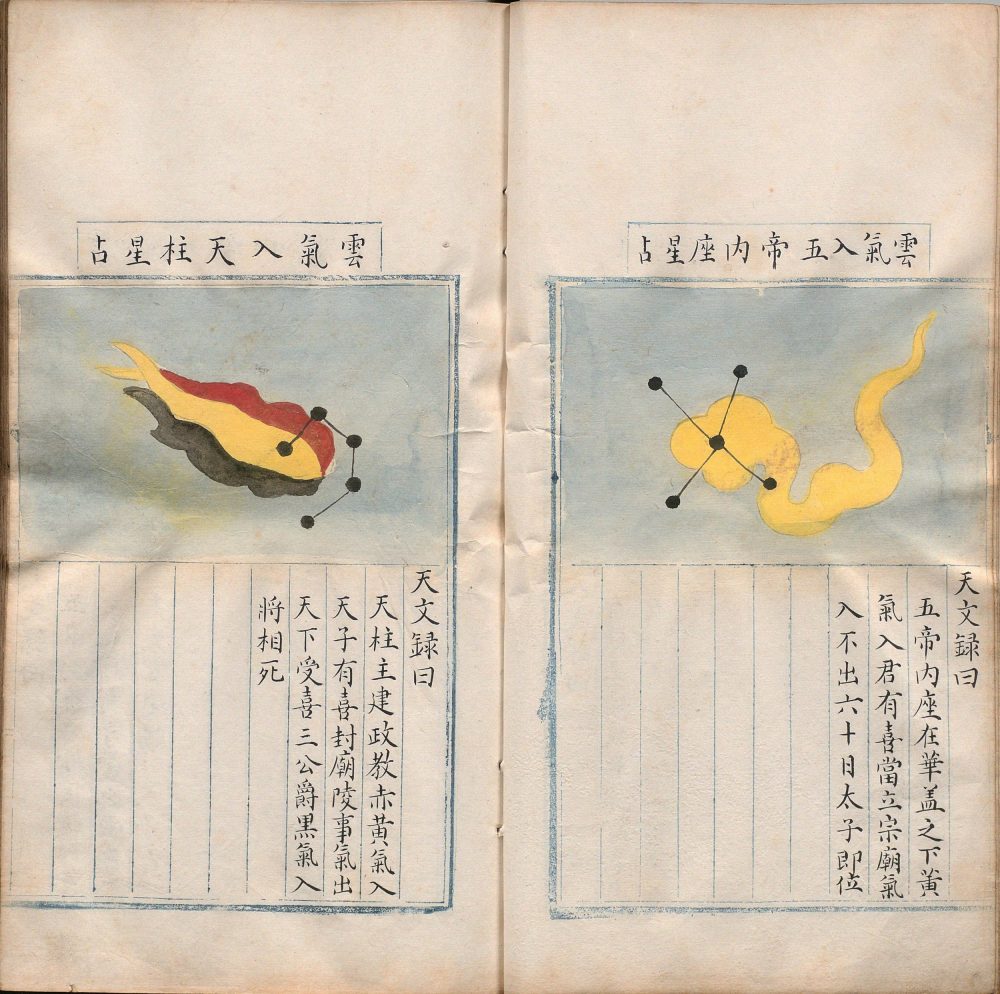 雲氣入五帝内座星占
天文録曰
五帝内座在華盖之下黄
氣入君有喜當立宗廟氣
入不出六十日太子即位
雲氣入天柱星占
天文録曰
天柱主建政教赤黄氣入
天子有喜封廟陵事氣出
天下受喜三公爵黒氣入
將相死